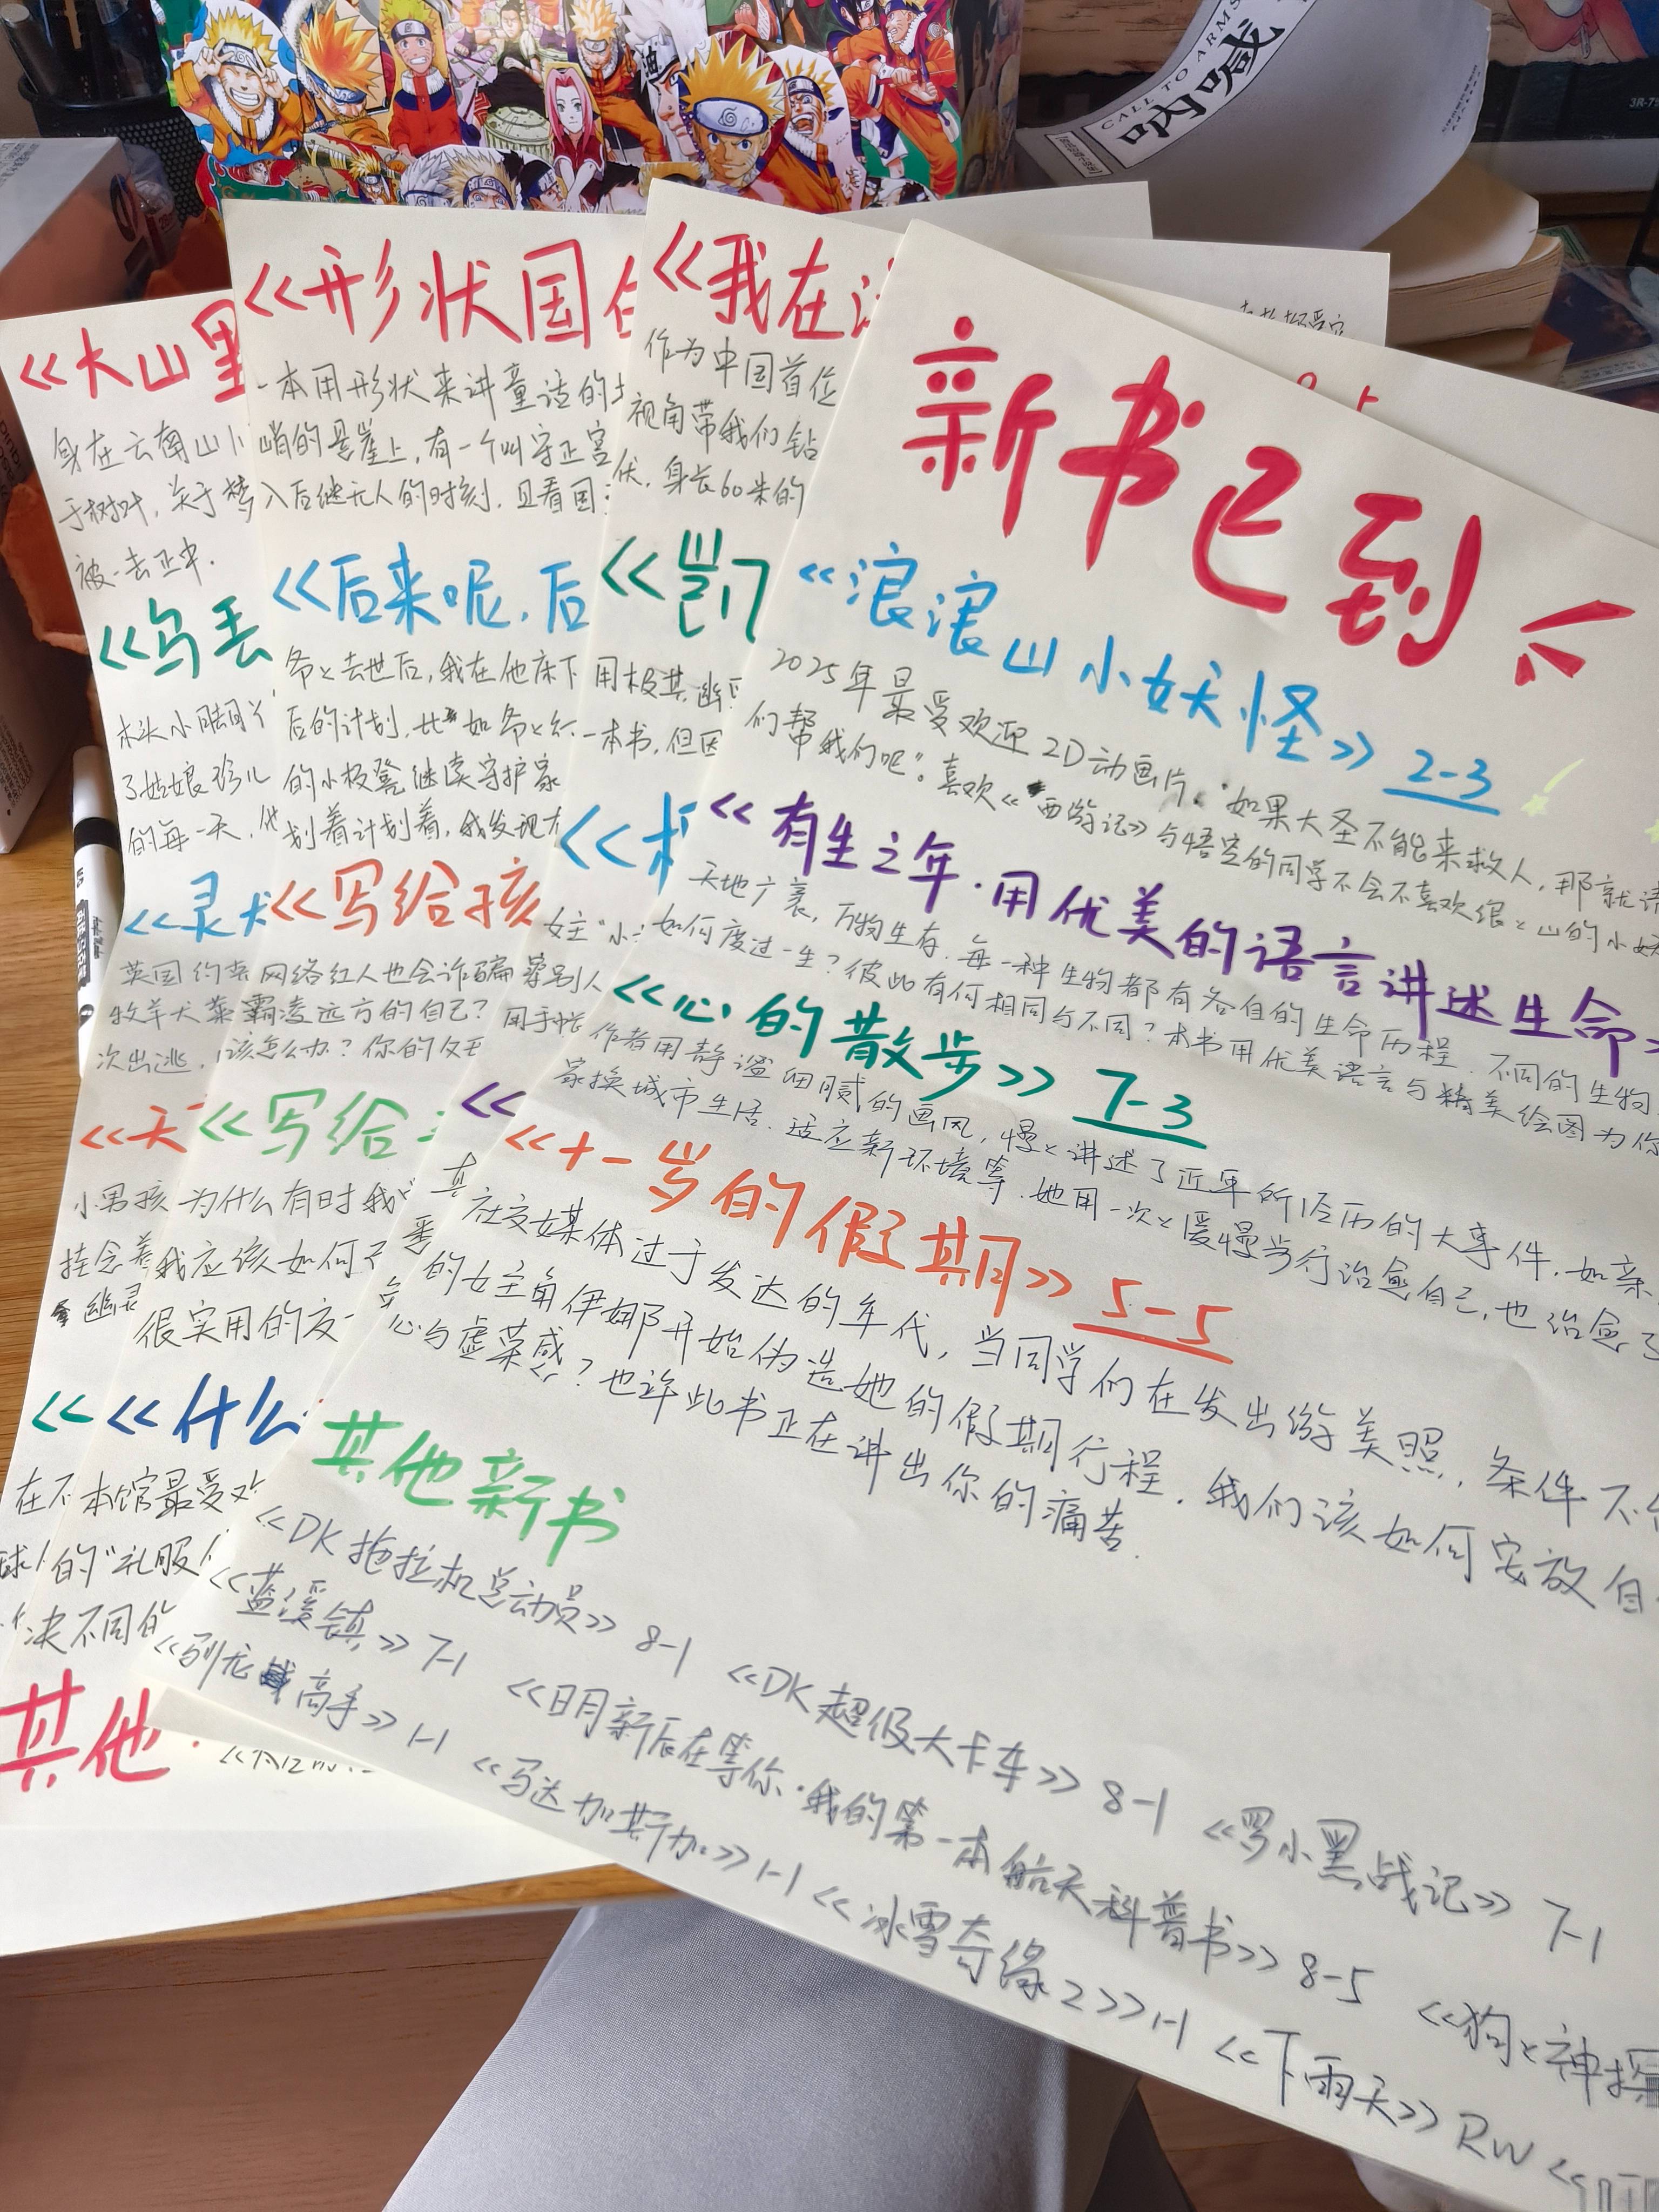 CALL TO ARMS
呐喊
油
3R-7
新书已到
《浪浪山小妖怪》 2-3
2025年最受欢迎2D动画片。"如果大圣不能来救人，那就请
们帮帮我们吧"。喜欢《西游记》与悟空的同学不会不喜欢浪々山的小妖
《有生之年·用优美的语言讲述生命》
天地广袤，万物生存，每一种生物都有各自的生命历程，不同的生物
如何度过一生？彼此有何相同与不同？本书用优美语言与精美绘图为你
《心的散步》 7-3
作者用静谧细腻的画风，慢々讲述了近年所经历的大事件，如亲
家换城市生活、适应新环境等，她用一次々缓慢步行治愈自己，也治愈了
《十一岁的假期》 5-5
在交媒体过于发达的年代，当同学们在发出游美照，条件不
的女主角伊娜开始伪造她的假期行程，我们该如何安放自
心与虚荣感？也许此书正在讲出你的痛苦.
其他新书
《DK拖拉机总动员》 8-1 《DK超级大卡车》 8-1 《罗小黑战记》 7-1
《蓝溪镇》 7-1 《日月新辰在等你·我的第一本航天科普书》 8-5 《狗々神探
《驯龙高手》 1-1 《马达加斯加》 1-1 《冰雪奇缘2》 1-1 《下雨天》 RW
《我在
作为中国首位
视角带我们钻
伏，身长60米的
《凯
用极其幽
一本书，但因
女主"小
《形状国
一本用形状来讲童话的
峭的悬崖上，有一个叫守正宫
入后继无人的时刻，且看国
《后来呢，后
爷々去世后，我在他床下
后的计划，比如爷々
的小板凳继续守护家
划着计划着，我发现
《写给孩
《写给
为什么有时我
我应该如何
很实用的
《什么
本馆最受欢
其他
《大山里
身在云南山
于树叶，关于梦
被一击正中.
《乌丢
木头小脚丫
了姑娘珍儿
的每一天，他
《灵犬
英国约克
牧羊犬莱
次出逃，
《天
小男孩
挂念着
幽灵
在不
球人的"礼服
决不同的
其他